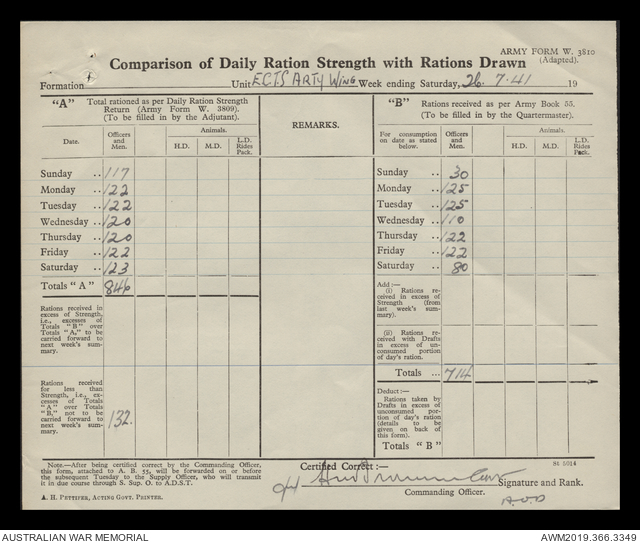 ARMY FORM W. 3810
(Adapted).
Comparison of Daily Ration Strength with Rations Drawn
Formation Unit E.C.T.S ARTY WING Week ending Saturday, 26. 7. 41 19
"A" Total rationed as per Daily Ration Strength
Return (Army Form W. 3809).
(To be filled in by the Adjutant).
Date. Officers and Men. Animals. H.D. M.D. L.D. Rides Pack.
Sunday .. 117
Monday .. 122
Tuesday .. 122
Wednesday .. 120
Thursday .. 120
Friday .. 122
Saturday .. 123
Totals "A" 846
Rations received in
excess of Strength,
i.e., excesses of
Totals "B" over
Totals "A," to be
carried forward to
next week's sum-
mary.
Rations received
for less than
Strength, i.e., ex-
cesses of Totals
"A" over Totals
"B," not to be
carried forward to
next week's sum-
mary. 132.
REMARKS.
"B" Rations received as per Army Book 55.
(To be filled in by the Quartermaster).
For consumption on date as stated below. Officers and Men. Animals. H.D. M.D. L.D. Rides Pack.
Sunday .. 30
Monday .. 125
Tuesday .. 125
Wednesday .. 110
Thursday .. 122
Friday .. 122
Saturday .. 80
Add :—
(i) Rations re-
ceived in excess of
Strength (from
last week's sum-
mary).
(ii) Rations re-
ceived with Drafts
in excess of un-
consumed portion
of day's ration.
Totals ... 714
Deduct :—
Rations taken by
Drafts in excess of
unconsumed por-
tion of day's ration
(details to be
given on back of
this form).
Totals "B"
Note.—After being certified correct by the Commanding Officer,
this form, attached to A. B. 55, will be forwarded on or before
the subsequent Tuesday to the Supply Officer, who will transmit
it in due course through S. Sup. O. to A.D.S.T.
A. H. PETTIFER, ACTING GOVT. PRINTER.
Certified Correct :—
St 5014
Signature and Rank.
Commanding Officer.
AUSTRALIAN WAR MEMORIAL
AWM2019.366.3349